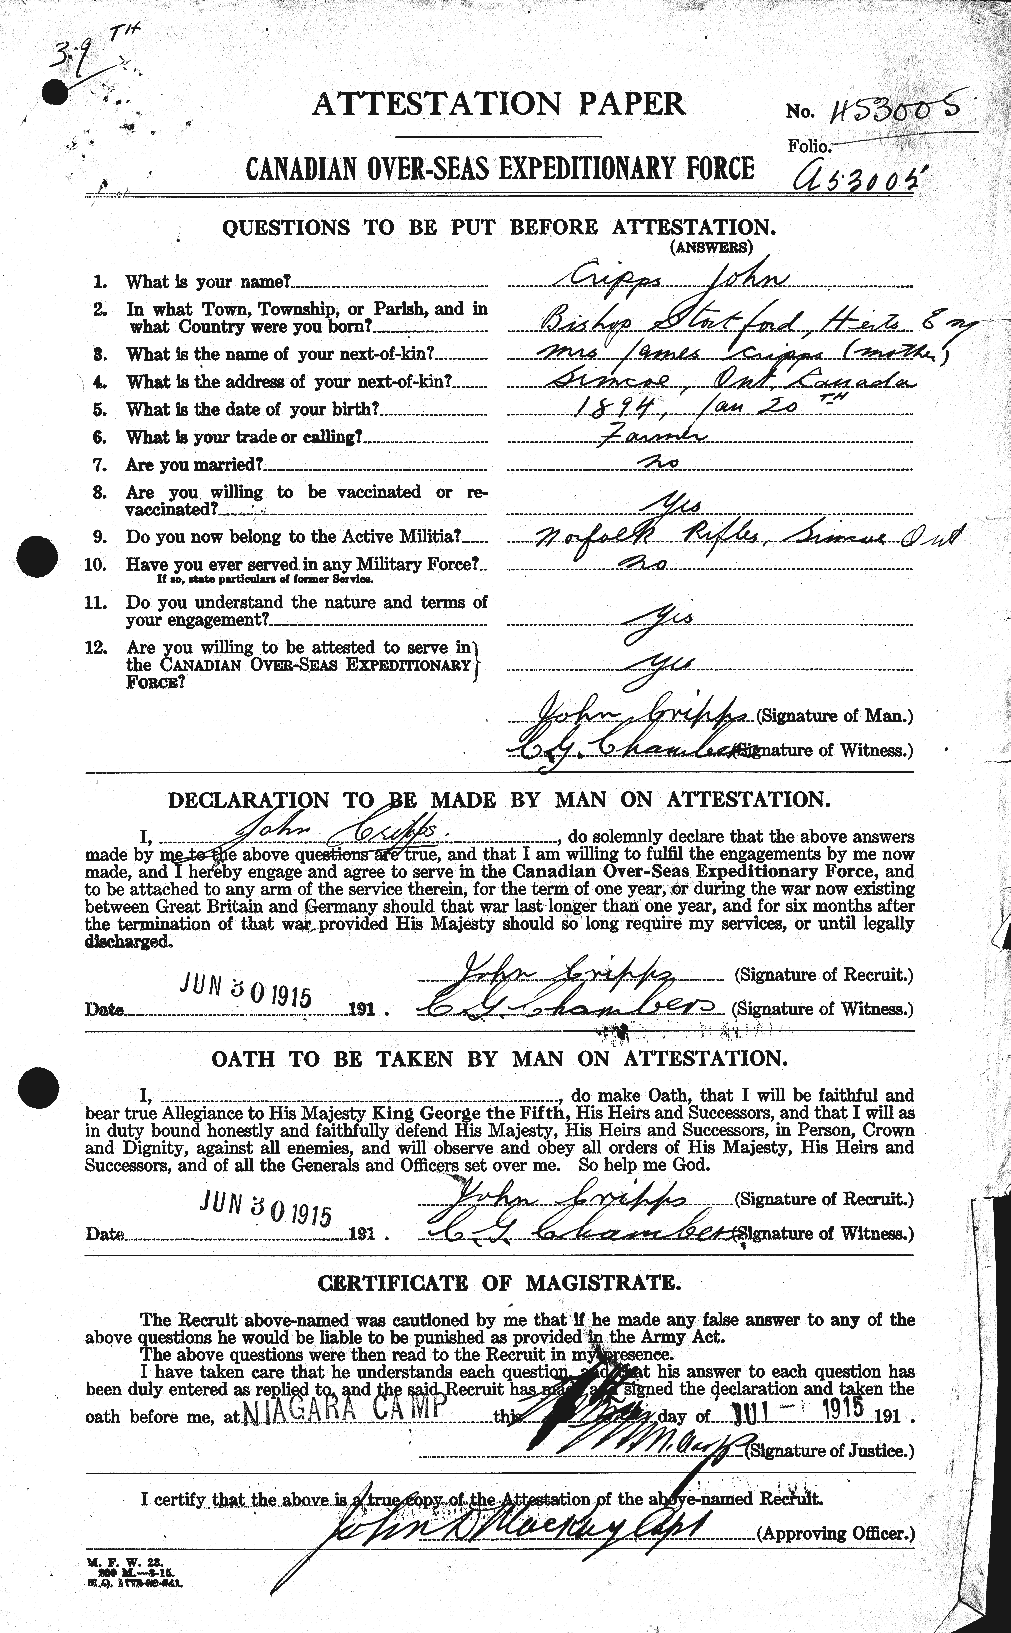 39 TH
ATTESTATION PAPER
No. 453005
Folio.
A53005
CANADIAN OVER-SEAS EXPEDITIONARY FORCE
QUESTIONS TO BE PUT BEFORE ATTESTATION.
(ANSWERS)
1. What is your name? Cripps John
2. In what Town, Township, or Parish, and in
what Country were you born? Bishop Stortford, Herts Eng
3. What is the name of your next-of-kin? Mrs James Cripps (mother)
4. What is the address of your next-of-kin? Simcoe, Ont. Canada
5. What is the date of your birth? 1894, Jan 20TH
6. What is your trade or calling? Farmer
7. Are you married? No
8. Are you willing to be vaccinated or re-
vaccinated? Yes
9. Do you now belong to the Active Militia? Norfolk Rifles, Simcoe Ont
10. Have you ever served in any Military Force? No
If so, state particulars of former Service.
11. Do you understand the nature and terms of
your engagement? Yes
12. Are you willing to be attested to serve in
the CANADIAN OVER-SEAS EXPEDITIONARY Yes
FORCE?
John Cripps (Signature of Man.)
C.G. Chambers (Signature of Witness.)
DECLARATION TO BE MADE BY MAN ON ATTESTATION.
I, John Cripps, do solemnly declare that the above answers
made by me to the above questions are true, and that I am willing to fulfil the engagements by me now
made, and I hereby engage and agree to serve in the Canadian Over-Seas Expeditionary Force, and
to be attached to any arm of the service therein, for the term of one year, or during the war now existing
between Great Britain and Germany should that war last longer than one year, and for six months after
the termination of that war provided His Majesty should so long require my services, or until legally
discharged.
John Cripps (Signature of Recruit.)
Date JUN 30 1915 191 . C G Chambers (Signature of Witness.)
OATH TO BE TAKEN BY MAN ON ATTESTATION.
I, , do make Oath, that I will be faithful and
bear true Allegiance to His Majesty King George the Fifth, His Heirs and Successors, and that I will as
in duty bound honestly and faithfully defend His Majesty, His Heirs and Successors, in Person, Crown
and Dignity, against all enemies, and will observe and obey all orders of His Majesty, His Heirs and
Successors, and of all the Generals and Officers set over me. So help me God.
John Cripps (Signature of Recruit.)
Date JUN 30 1915 191 . C. G. Chambers (Signature of Witness.)
CERTIFICATE OF MAGISTRATE.
The Recruit above-named was cautioned by me that if he made any false answer to any of the
above questions he would be liable to be punished as provided in the Army Act.
The above questions were then read to the Recruit in my presence.
I have taken care that he understands each question, and that his answer to each question has
been duly entered as replied to, and the said Recruit has made and signed the declaration and taken the
oath before me, at NIAGARA CAMP this day of JUL - 1915 191 .
(Signature of Justice.)
I certify that the above is a true copy of the Attestation of the above-named Recruit.
John D Mackay Capt (Approving Officer.)
M. F. W. 23.